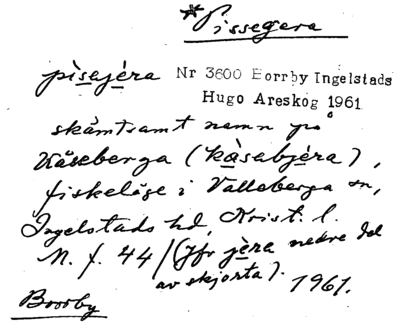 *Pissegera
pìsejèra Nr 3600 Borrby Ingelstads
Hugo Areskog 1961
skämtsamt namn på
Kåseberga (kåsabjèra),
fiskeläge i Valleberga sn,
Ingelstads hd, Krist. l.
M. f. 44/(Jfr jèra nedre del
av skjorta). 1961.
Borrby